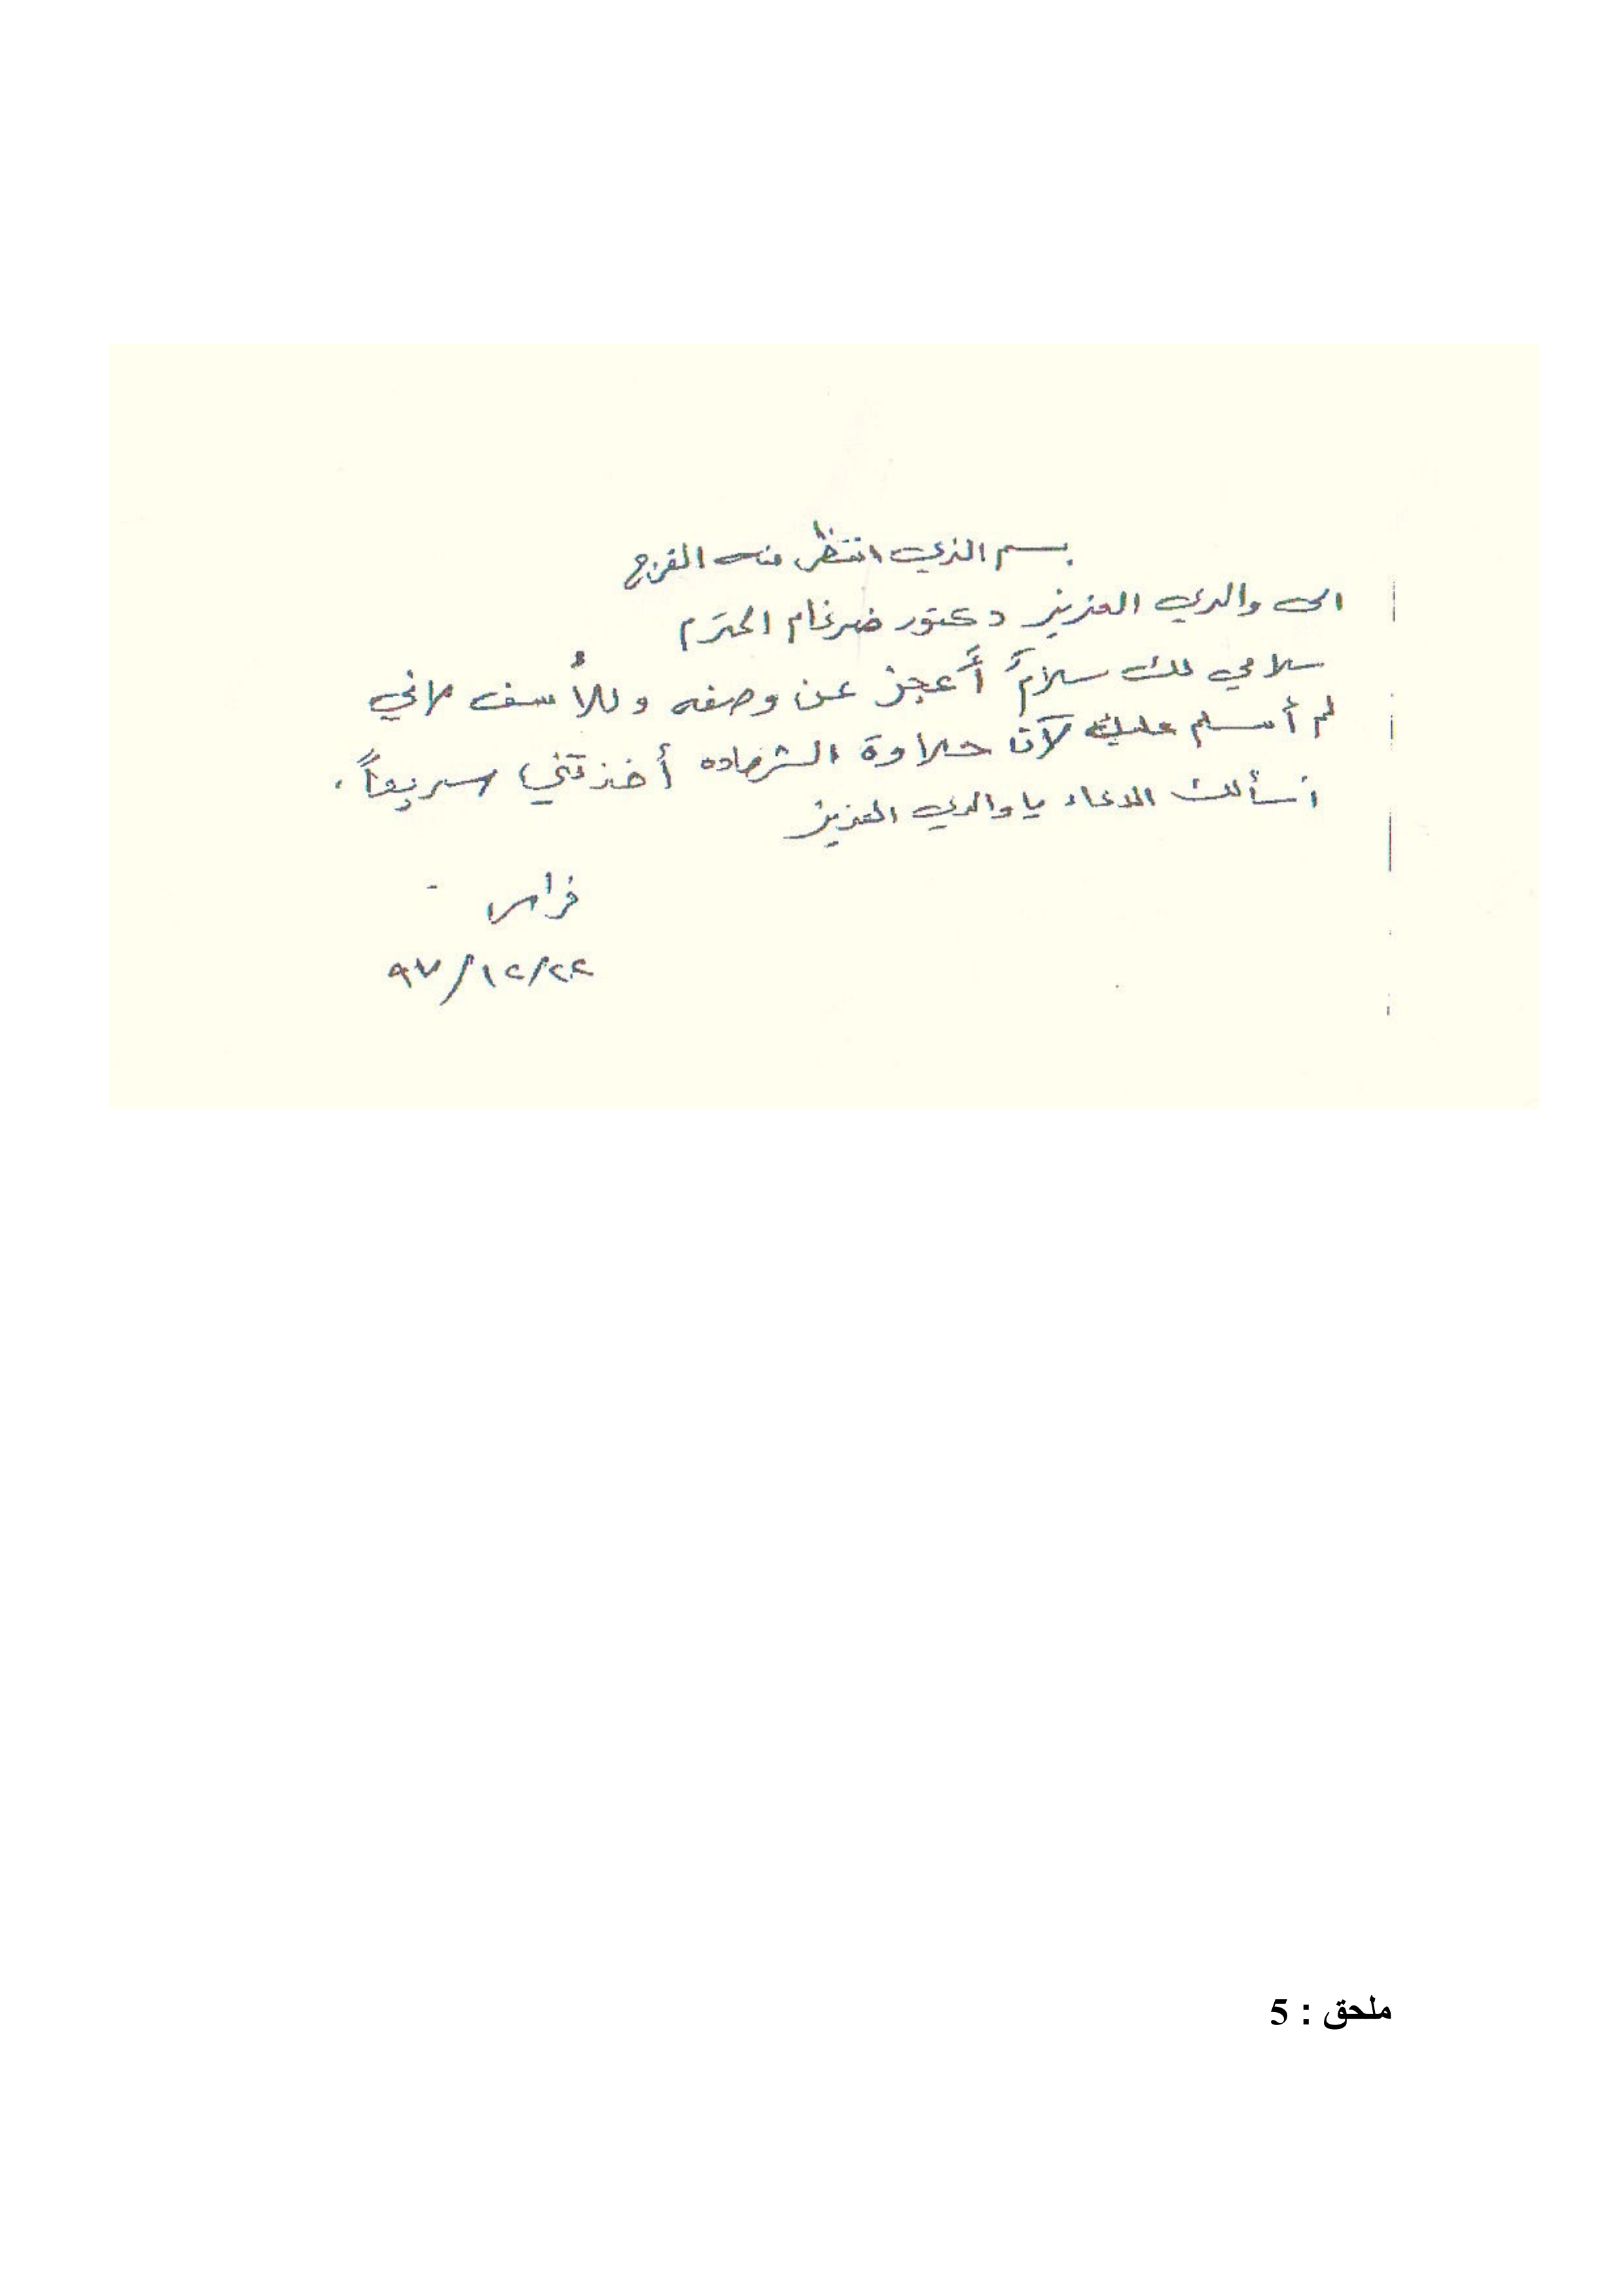 بسم الذي انتظر منه الفرج
الى والدي العزيز دكتور ضرغام المحترم
سلامي لك سلامً أَعجز عن وصفه وللأسف لاني
لم أسلم عليك لآن حلاوة الشهاده أخذتني سريعاً .
أسألك الدعاء يا والدي العزيز
فراس
٩٧/١٢/٢٢
ملحق : 5